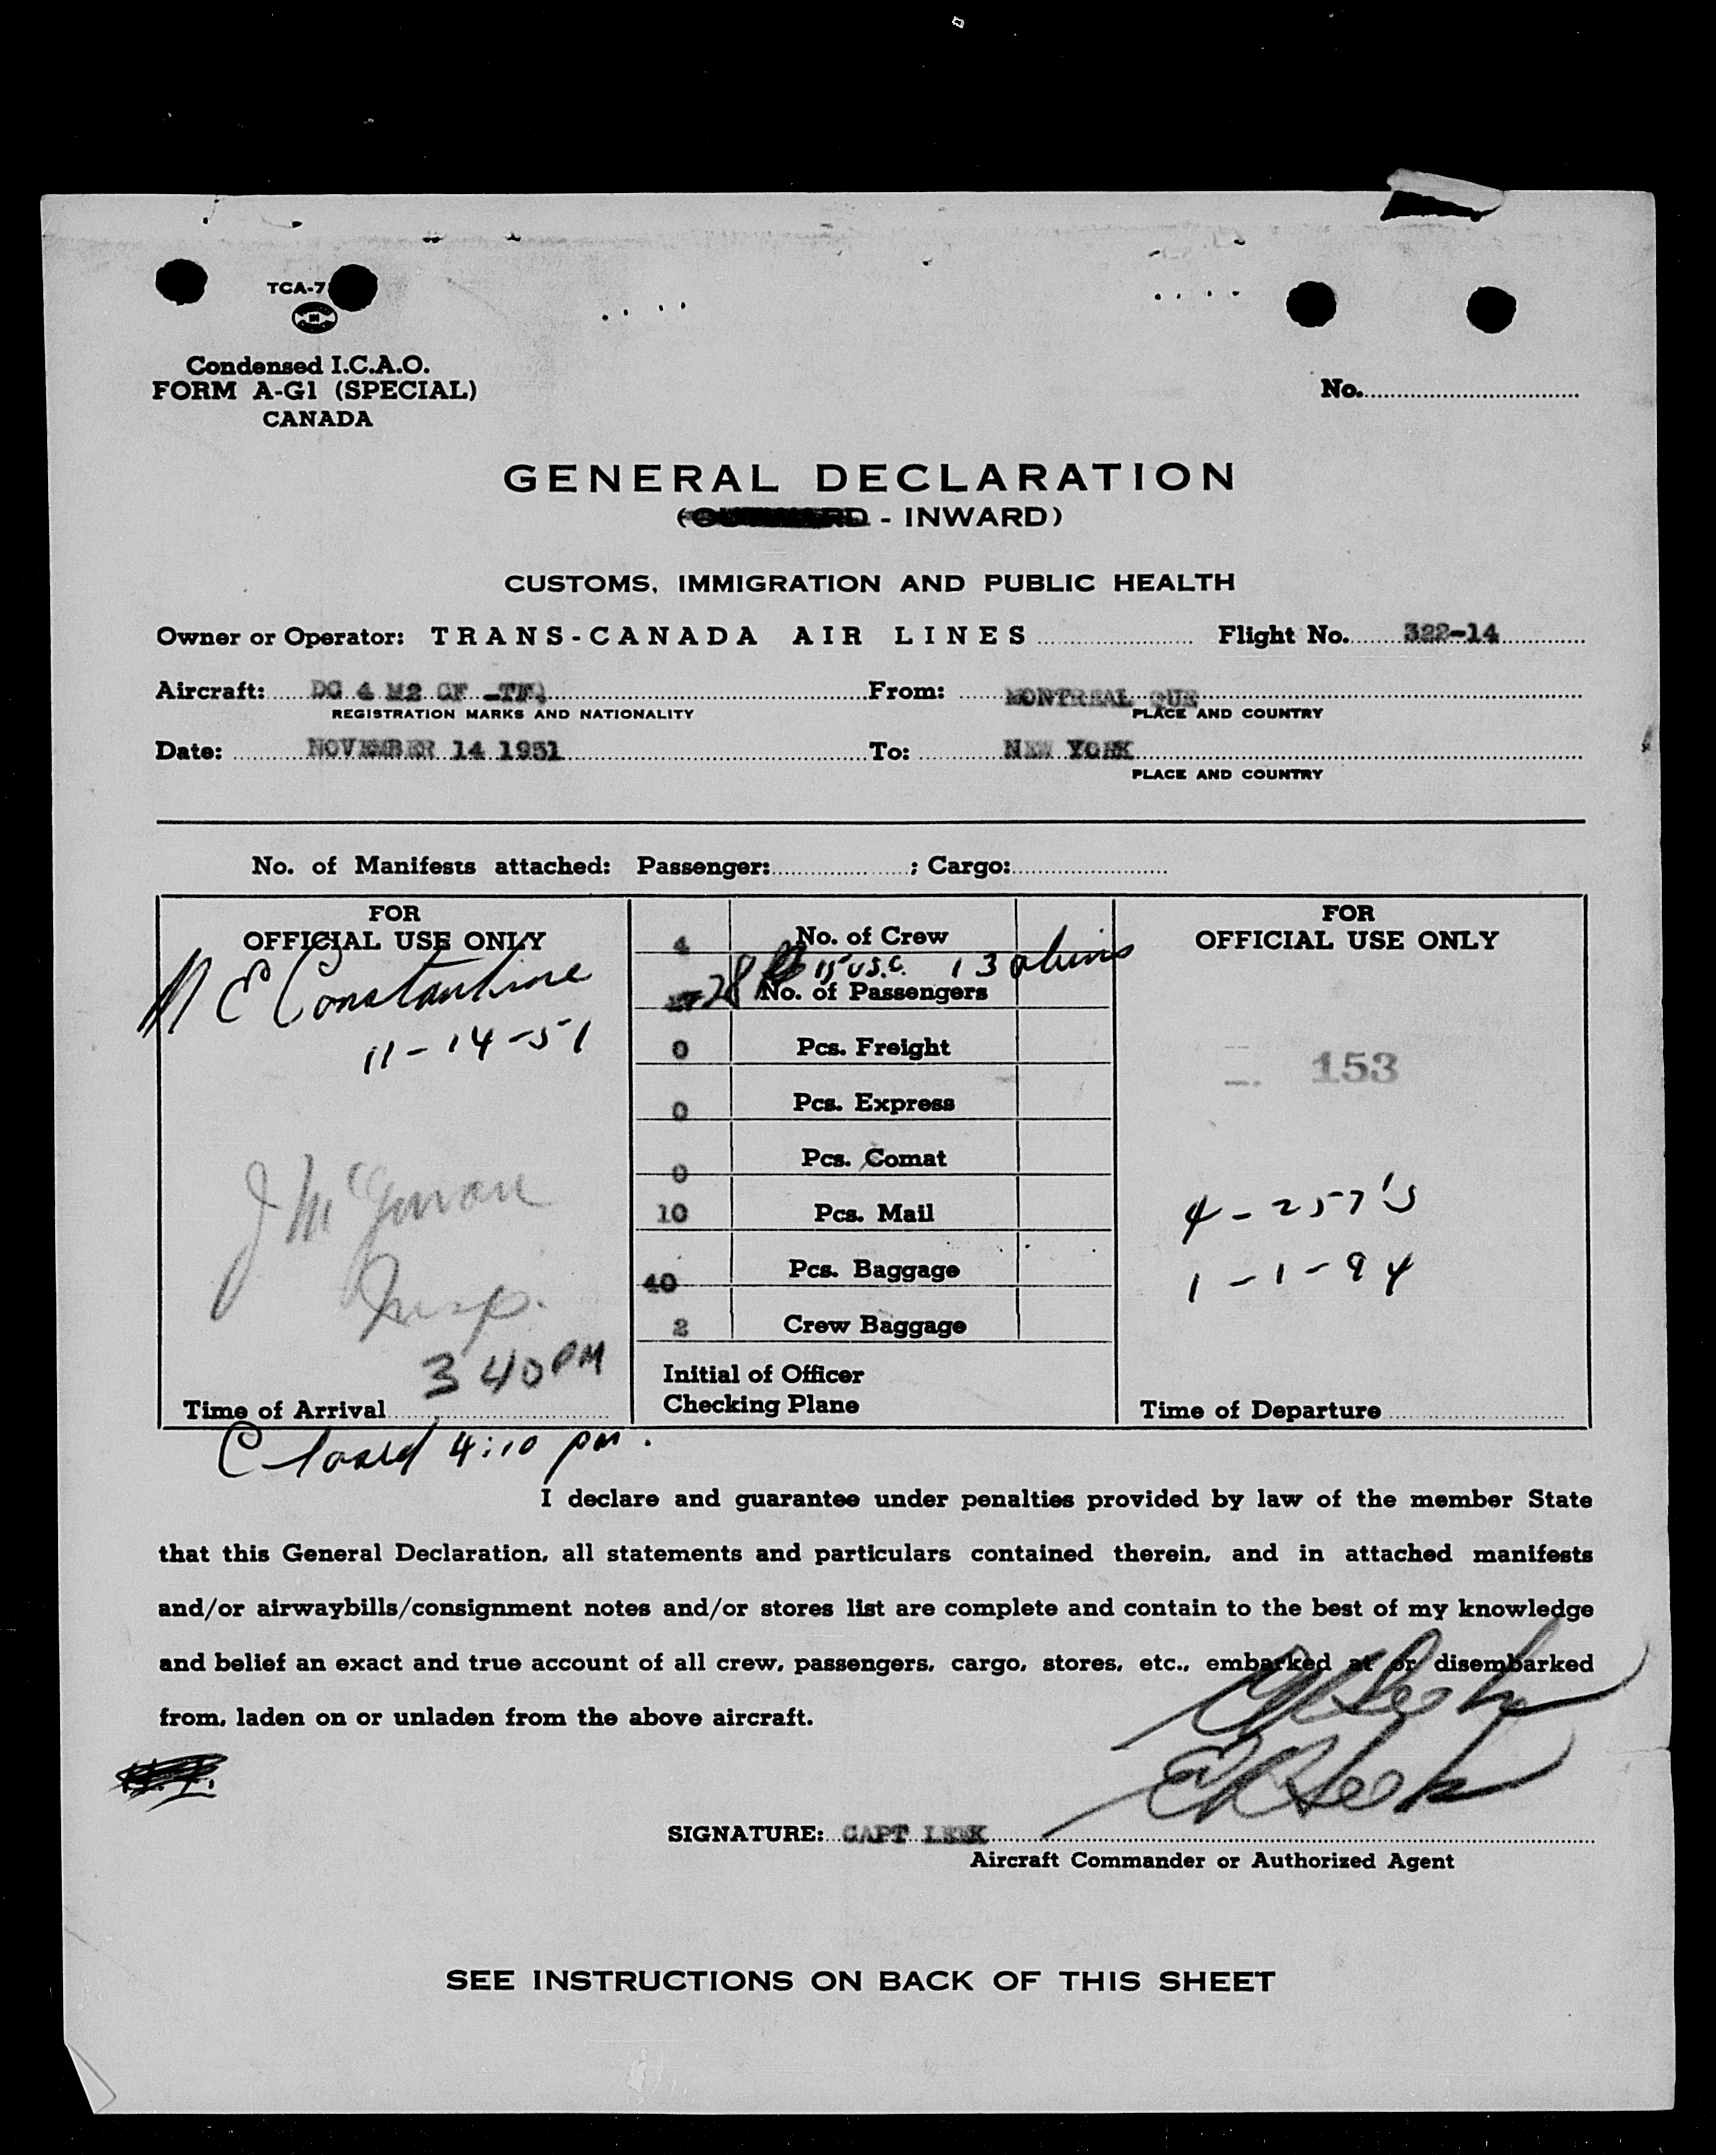 TCA-7
Condensed I.C.A.O.
FORM A-G1 (SPECIAL)
CANADA
No.
GENERAL DECLARATION
( - INWARD)
CUSTOMS, IMMIGRATION AND PUBLIC HEALTH
Owner or Operator: TRANS-CANADA AIR LINES Flight No. 322-14
Aircraft: DC 4 M2 CF -TFQ From: MONTREAL QUE
REGISTRATION MARKS AND NATIONALITY PLACE AND COUNTRY
Date: NOVEMBER 14 1951 To: NEW YORK
PLACE AND COUNTRY
No. of Manifests attached: Passenger: ; Cargo:
FOR
OFFICIAL USE ONLY
N E Constantine
11-14-51
J McGowan
Insp.
3 40 PM
Time of Arrival
4 No. of Crew
28 15 U.S.C. 13 aliens
No. of Passengers
0 Pcs. Freight
0 Pcs. Express
0 Pcs. Comat
10 Pcs. Mail
40 Pcs. Baggage
2 Crew Baggage
Initial of Officer
Checking Plane
FOR
OFFICIAL USE ONLY
153
4-257's
1-1-94
Time of Departure
Closed 4:10 pm.
I declare and guarantee under penalties provided by law of the member State
that this General Declaration, all statements and particulars contained therein, and in attached manifests
and/or airwaybills/consignment notes and/or stores list are complete and contain to the best of my knowledge
and belief an exact and true account of all crew, passengers, cargo, stores, etc., embarked at or disembarked
from, laden on or unladen from the above aircraft.
SIGNATURE: CAPT LEEK
Aircraft Commander or Authorized Agent
SEE INSTRUCTIONS ON BACK OF THIS SHEET